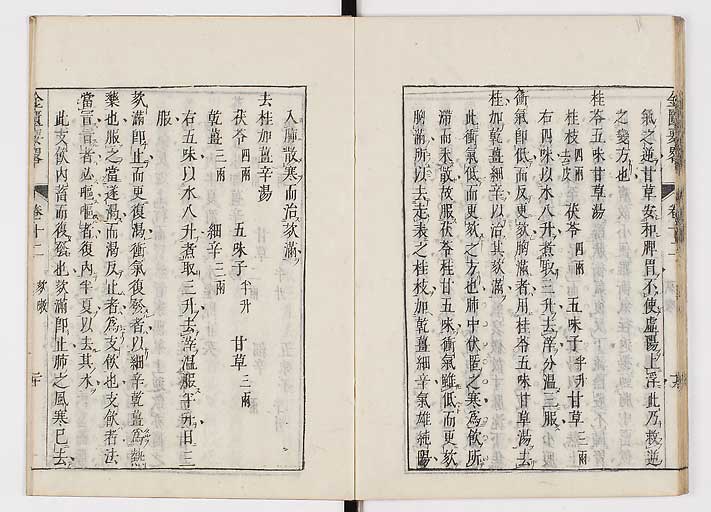 氣之逆甘草安和脾胃不使虛陽上浮此乃救逆
之變方也
桂苓五味甘草湯
桂枝 四兩 去皮 茯苓 四兩 五味子 半升 甘草 三兩
右四味以水八升煮取三升去滓分溫三服
衝氣即低而反更欬胸滿者用桂苓五味甘草湯去
桂加乾薑細辛以治其欬滿
此衝氣低而更欬之方也肺中伏匿之寒爲飲所
滯而未散故服茯苓桂甘五味衝氣雖低而更欬
胸滿所以去走表之桂枝加乾薑細辛氣雄純陽
金匱要畧 卷十二
入肺散寒而治欬滿
去桂加薑辛湯
茯苓 四兩 五味子 半升 甘草 三兩
乾薑 三兩 細辛 三兩
右五味以水八升煮取三升去滓溫服半升日三
服
欬滿即止而更復渴衝氣復發者以細辛乾薑爲熱
藥也服之當遂渴而渴反止者爲支飲也支飲者法
當冒冒者必嘔嘔者復內半夏以去其水
此支飲內蓄而復發也欬滿即止肺之風寒已去
金匱要畧 卷十二 痰欬 二十